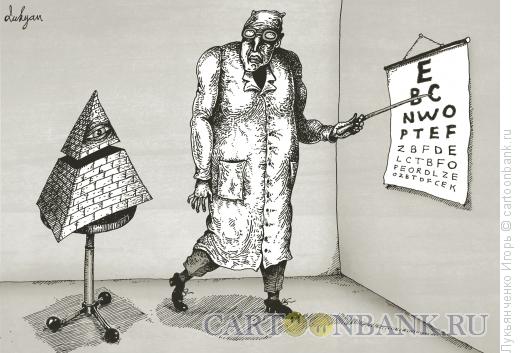 Lukyan
E
B C
N W O
P T E F
Z B F D E
L C T B F O
P E O R D L Z E
O Z B T D F C E K
CARTOONBANK.RU
Лукьянченко Игорь © cartoonbank.ru